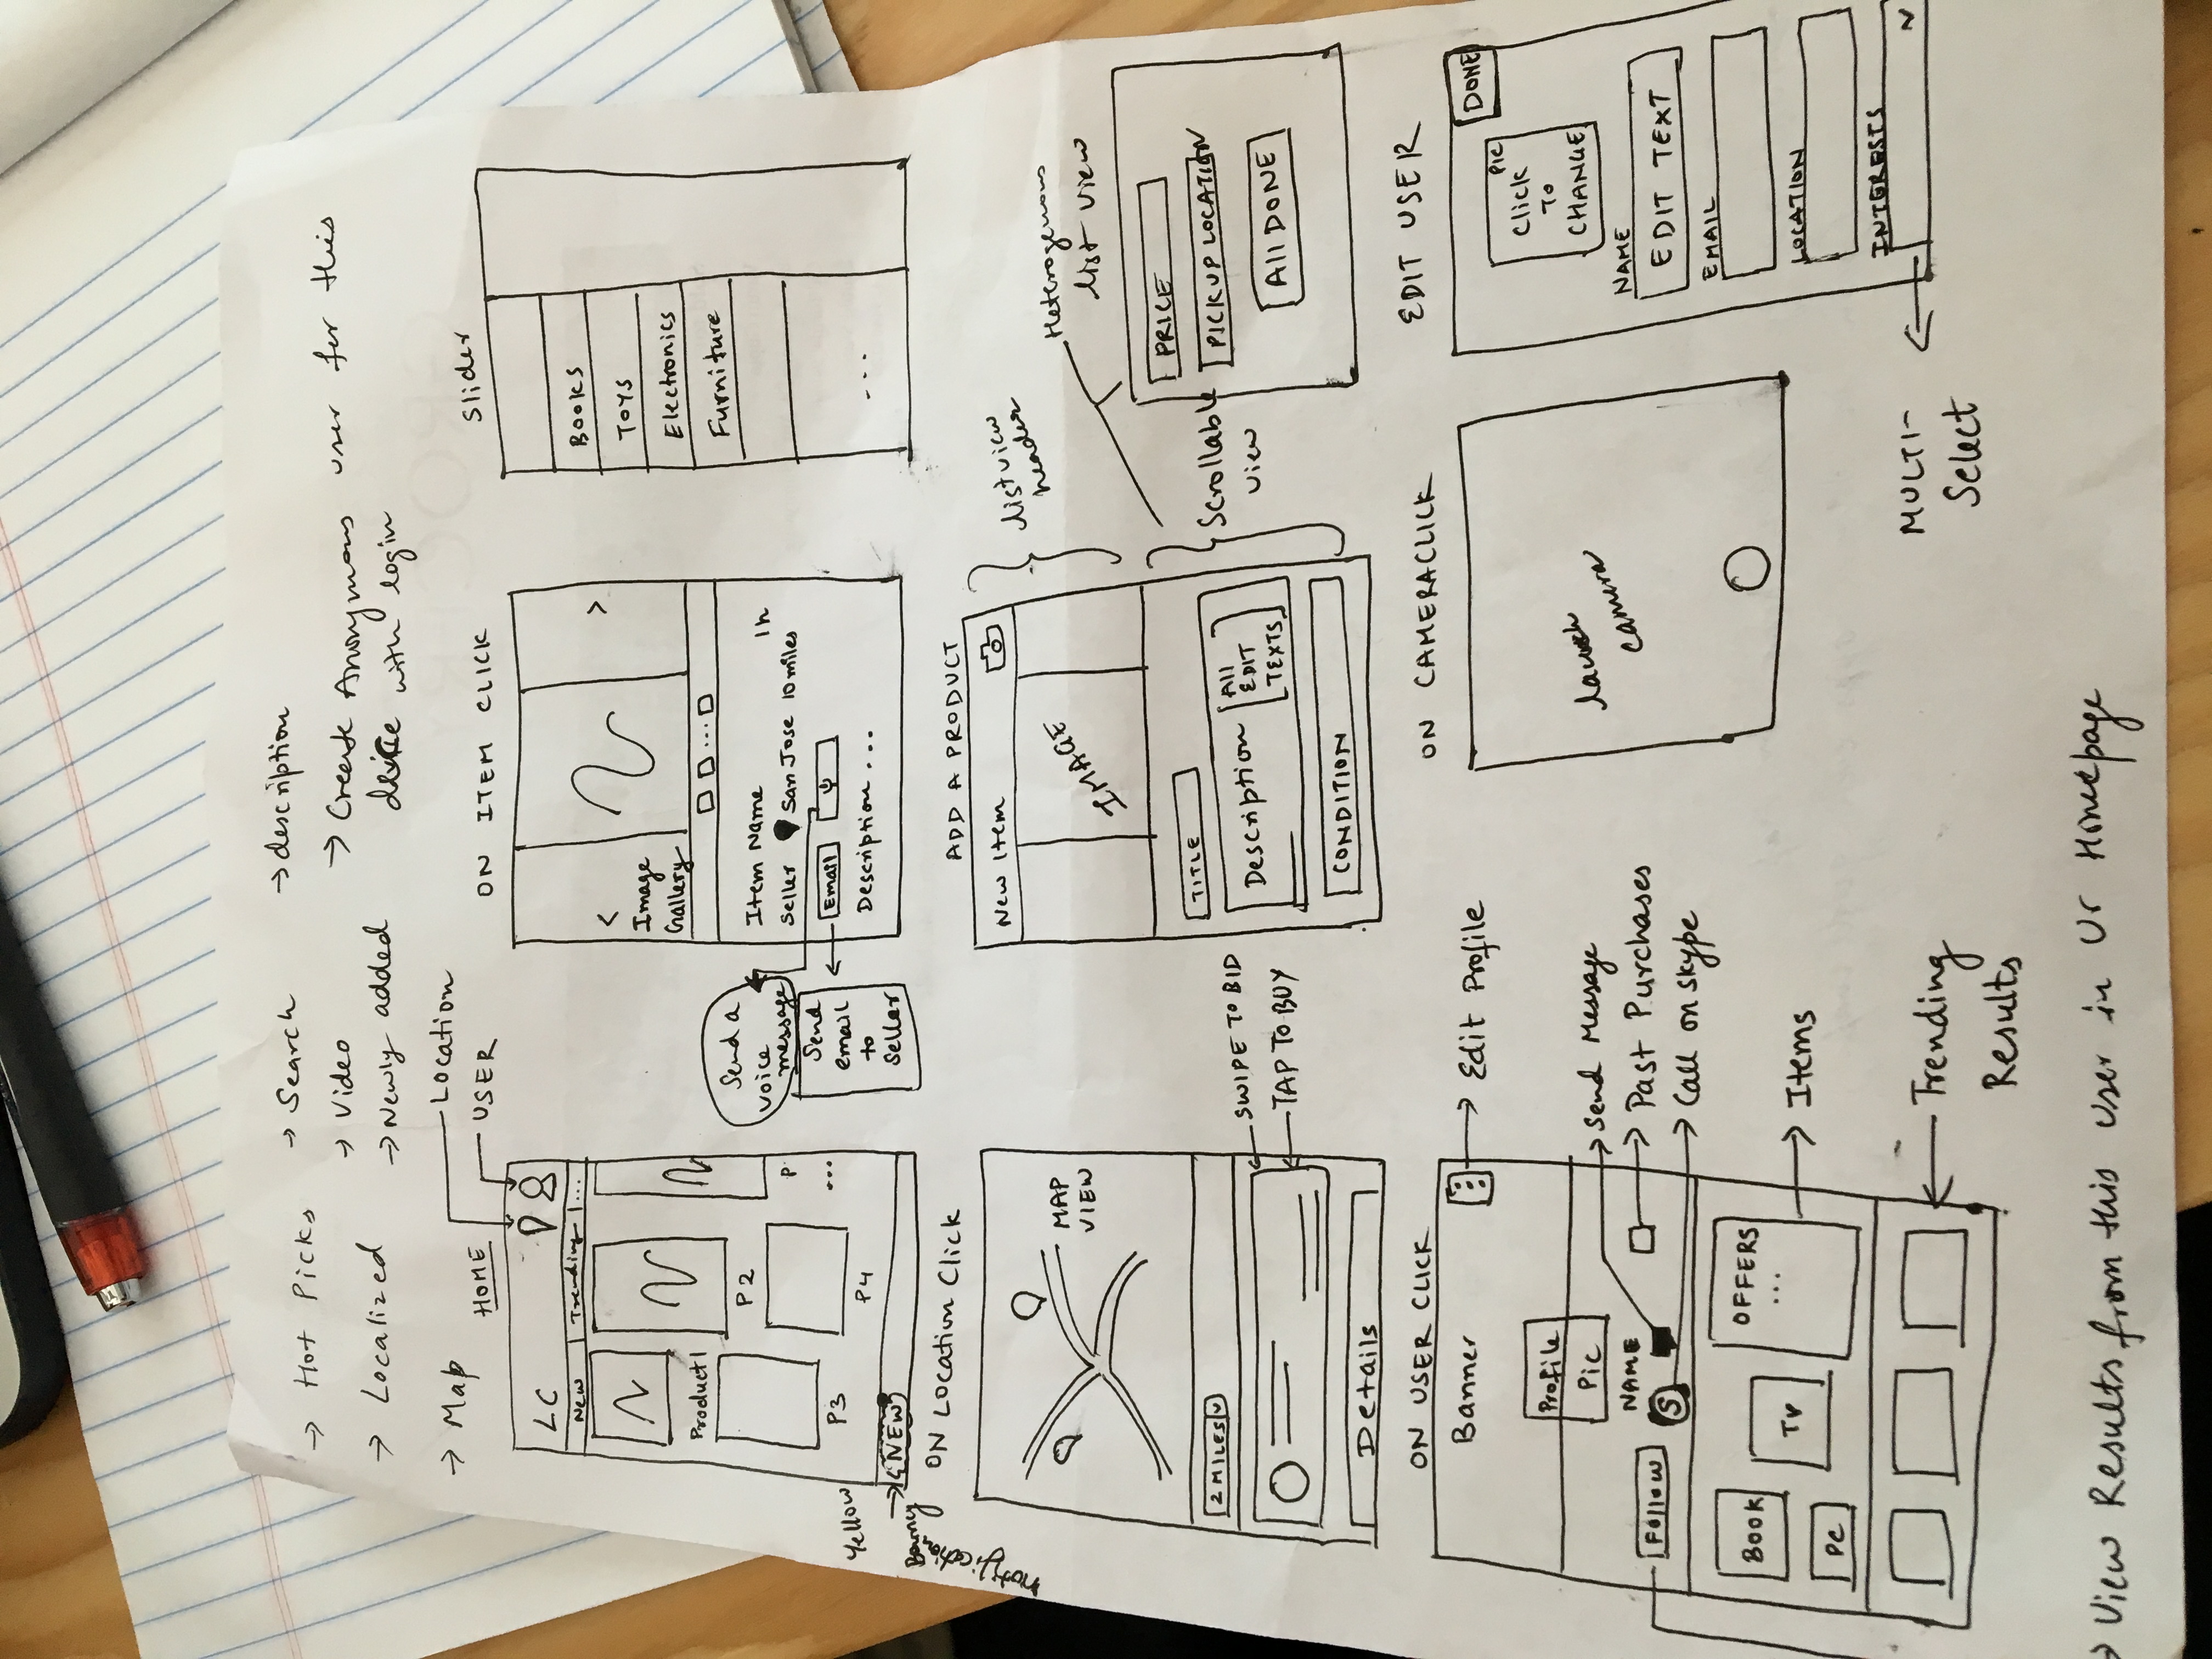 → Hot Picks
→ Localized
→ Map
→ Search
→ Video
→ Newly added
→ description
→ Create Anonymous user for this
device with login
HOME
Location
USER
LC
New | Trending | ...
Product1
P2
P
...
P3
P4
NEW
Yellow
Bouncy
Notification
ON ITEM CLICK
<
>
Image
Gallery
...
Item Name
1h
Seller San Jose 10 miles
Email
Description ...
Send a
voice
message
Send
email
to
seller
Slider
Books
TOYS
Electronics
Furniture
...
ON Location Click
MAP
VIEW
2 MILES
SWIPE TO BID
TAP TO BUY
Details
ADD A PRODUCT
New Item
IMAGE
TITLE
Description
All
EDIT
TEXTS
CONDITION
listview
header
Scrollable
view
Heterogenous
list view
PRICE
PICKUP LOCATION
All DONE
ON USER CLICK
Banner
Edit Profile
Profile
Pic
NAME
Follow
S
Send Message
Past Purchases
Call on skype
BOOK
TV
PC
OFFERS
...
Items
Trending
Results
ON CAMERA CLICK
launch
camera
EDIT USER
DONE
PIC
Click
TO
CHANGE
NAME
EDIT TEXT
EMAIL
LOCATION
INTERESTS
MULTI-
Select
→ View Results from this user in Ur Homepage